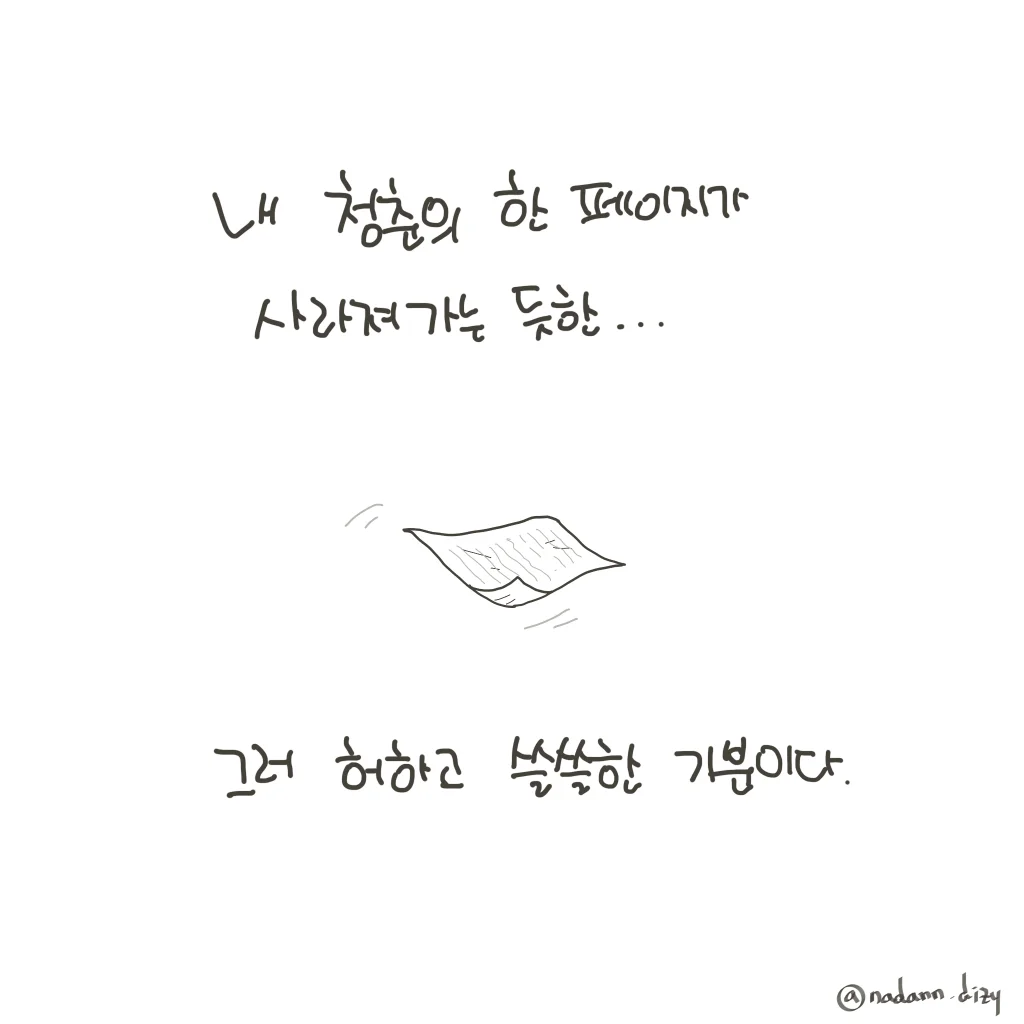 내 청춘의 한 페이지가
사라져가는 듯한...
그러 허하고 쓸쓸한 기분이다.
@nadann.dizy